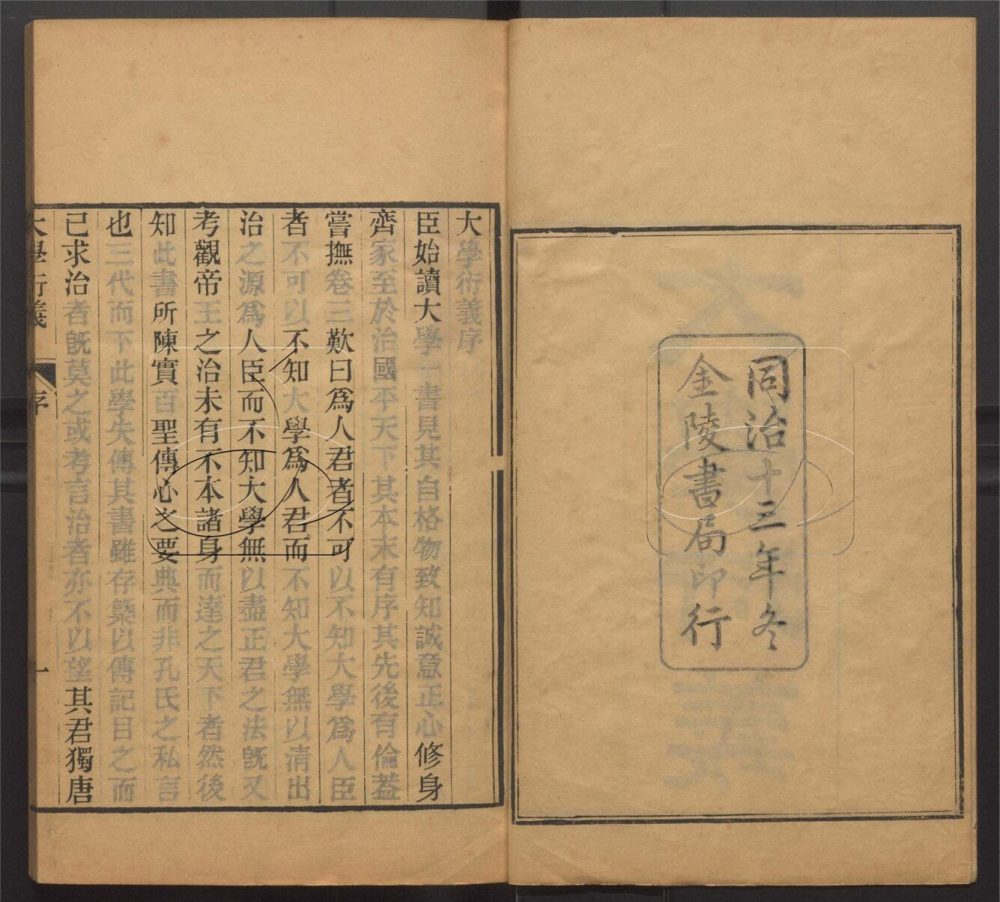 同治十三年冬
金陵書局印行
大學衍義序
臣始讀大學一書見其自格物致知誠意正心修身
齊家至於治國平天下其本末有序其先後有倫蓋
嘗撫卷三歎曰爲人君者不可以不知大學爲人臣
者不可以不知大學爲人君而不知大學無以清出
治之源爲人臣而不知大學無以盡正君之法旣又
考觀帝王之治未有不本諸身而達之天下者然後
知此書所陳實百聖傳心之要典而非孔氏之私言
也三代而下此學失傳其書雖存槩以傳記目之而
已求治者旣莫之或考言治者亦不以望其君獨唐
大學衍義
序
一